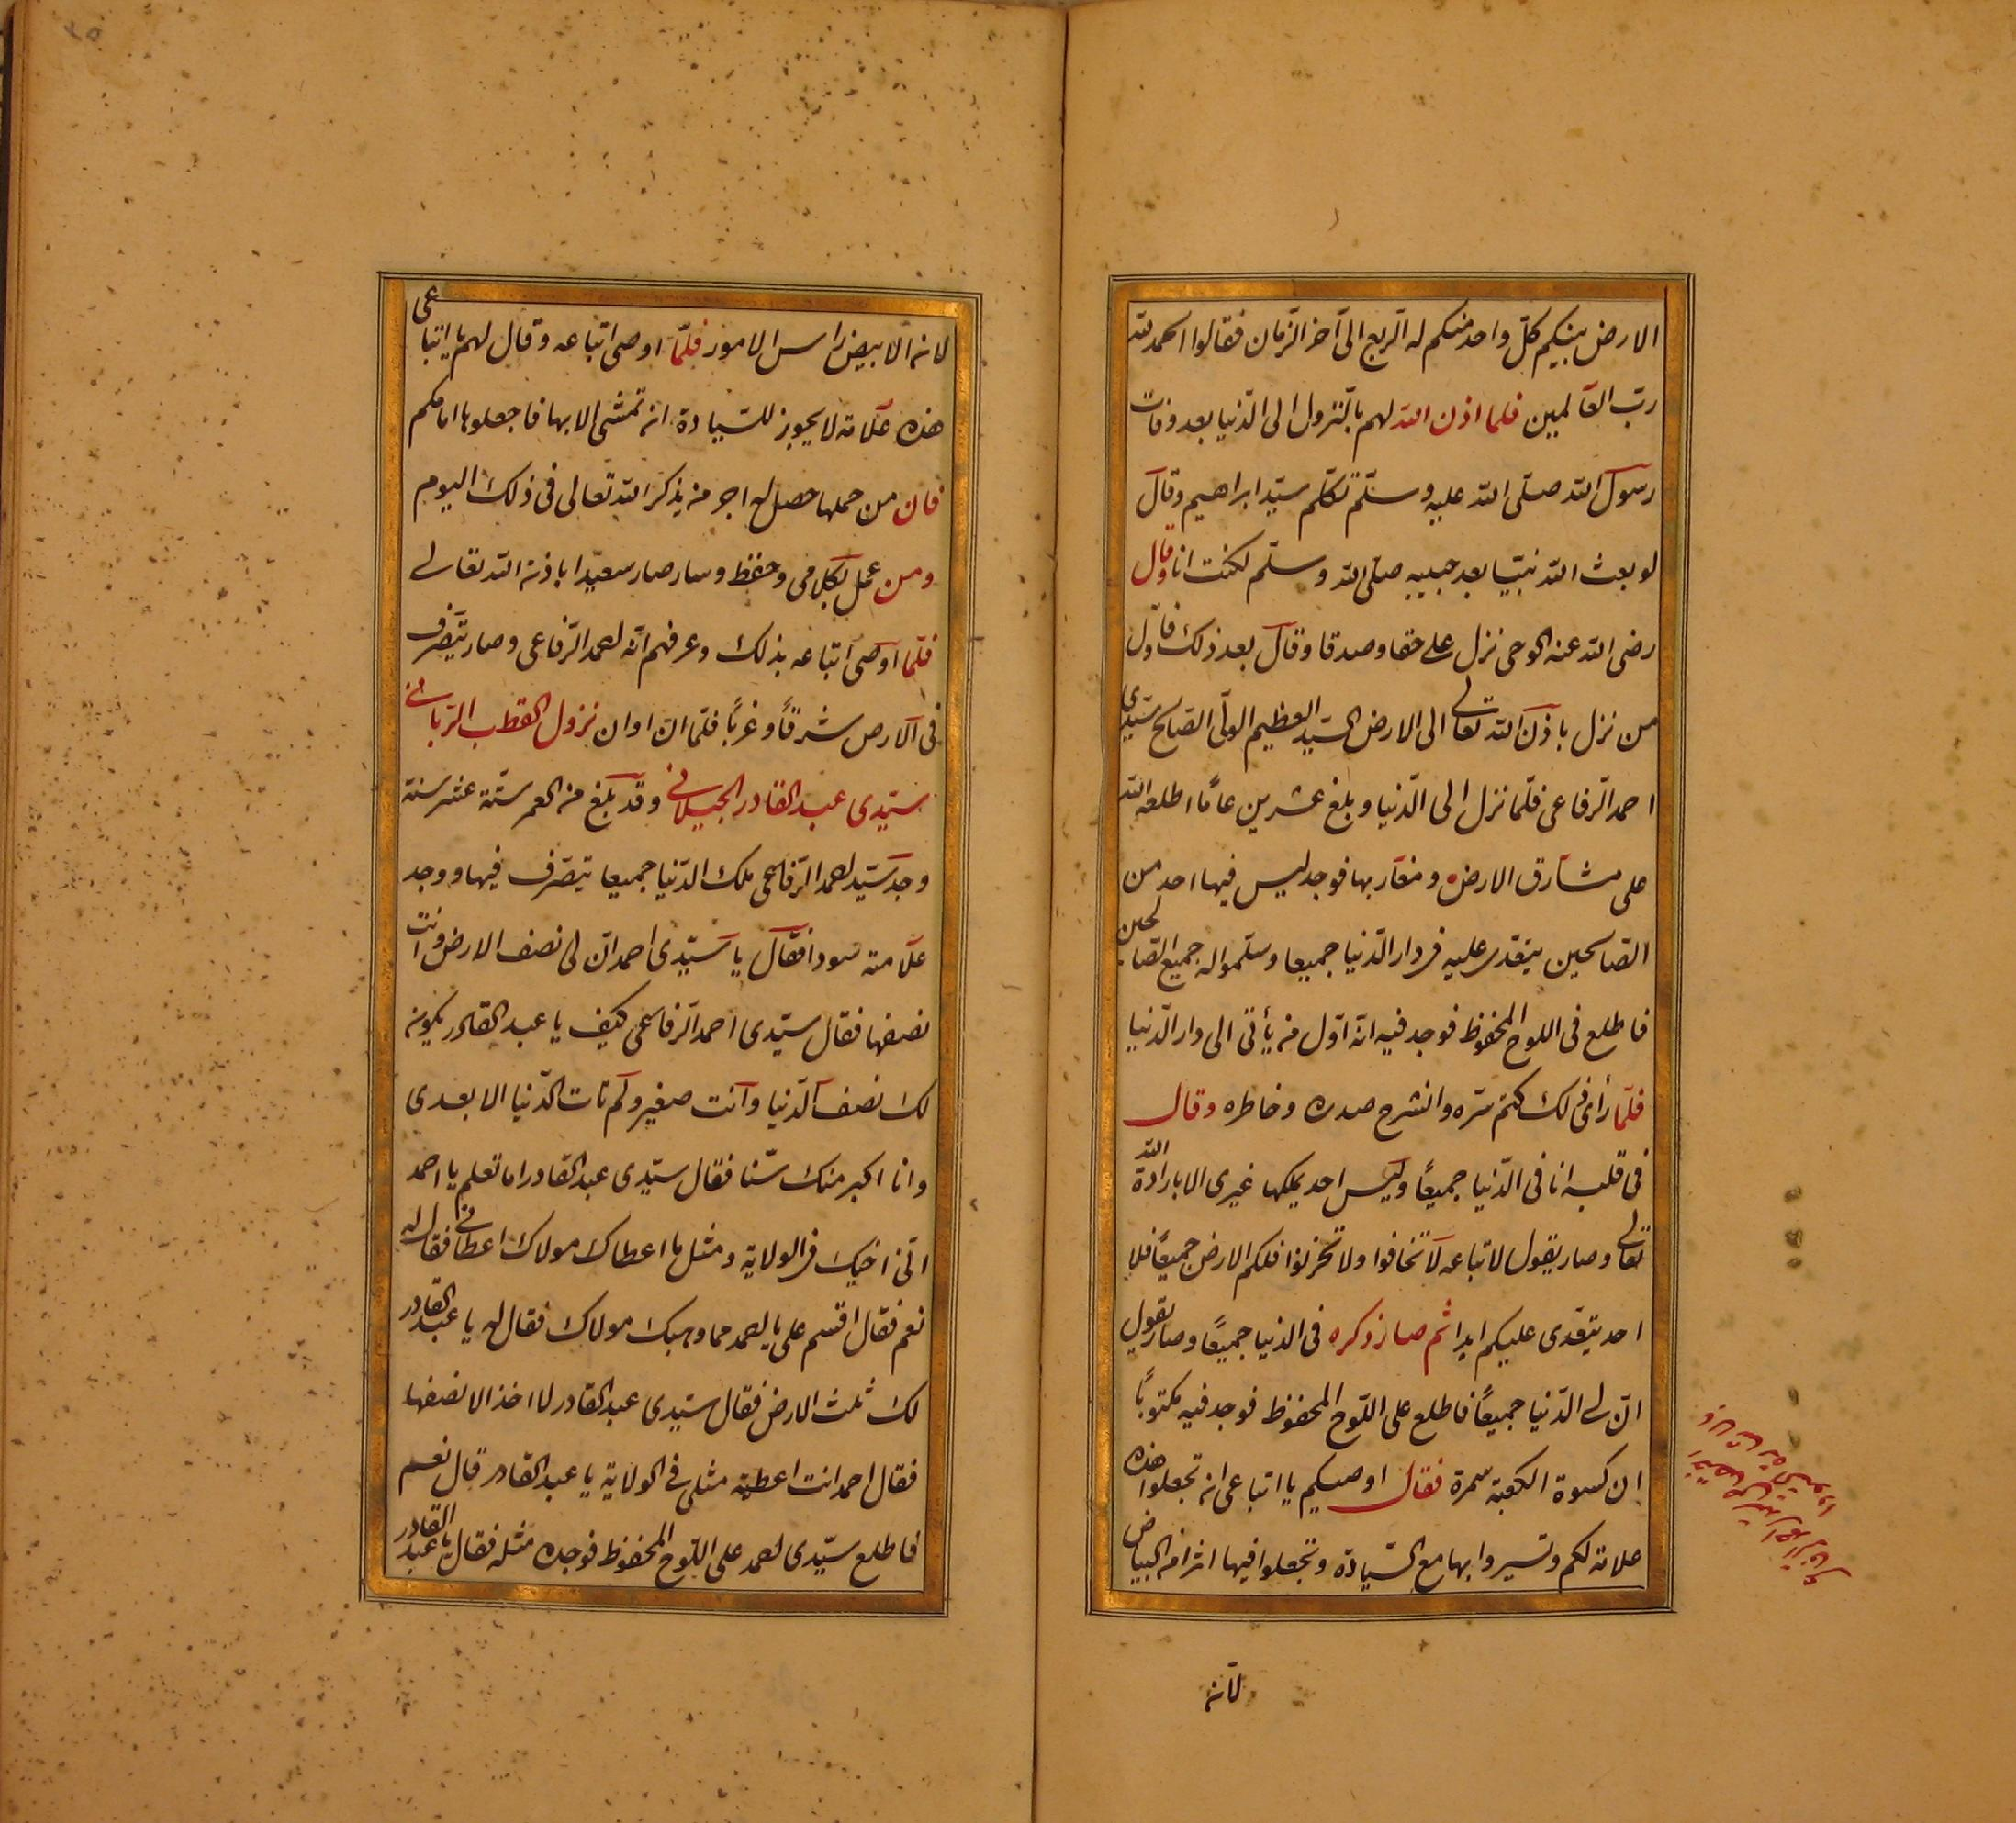 الارض بينكم كلّ واحد منكم له الربع الى آخر الزمان فقالوا الحمد لله
ربّ العالمين فلما اذن الله لهم بالنزول الى الدّنيا بعد وفات
رسول الله صلّى الله عليه وسلّم تكلّم سيّد ابراهيم وقال
لو بعث الله نبيّا بعد حبيبه صلّى الله وسلّم لكنت انا وقال
رضى الله عنه الوحى نزل على حقا وصدقا وقال بعد ذلك فاوّل
من نزل باذن الله تعالى الى الارض السيّد العظيم الولّى الصالح سيّدى
احمد الرّفاعى فلمّا نزل الى الدّنيا وبلغ عشرين عامًا اطلعه الله
على مشارق الارض ومغاربها فوجد ليس فيها احد من
الصّالحين يتعدى عليه فى دار الدّنيا جميعا وسلّمواله جميع الصّالحين
فاطلع فى اللوح المحفوظ فوجد فيه انه اوّل من يأتى الى دار الدّنيا
فلمّا رأى ذلك كتم سّره وانشرح صدره وخاطره وقال
فى قلبه انا فى الدّنيا جميعًا وليس احد يملكها غيرى الا بارادة الله
تعالى وصار يقول لاتباعه لا تخافوا ولا تحزنوا فلكم الارض جميعًا فلا
احد يتعّدى عليكم ابدا ثم صار ذكره فى الدنيا جميعًا وصار يقول
انّ لى الدّنيا جميعًا فاطلع على اللّوح المحفوظ فوجد فيه مكتوبًا
ان كسوة الكعبة سمرة فقال اوصيكم يا اتباعى انه تجعلوا هذه
علامة لكم وتسيروا بها مع السّيادة وتجعلوا فيها اثرا من البياض
لانه
لانه الابيض راس الامور فلمّا اوصى اتباعه وقال لهم يا اتباعى
هذه علامة لا يجوز للسّيادة انه تمشى الا بها فاجعلوها امامكم
فان من حملها حصل له اجر من يذكر الله تعالى فى ذلك اليوم
ومن عمل بكلامى وحفظ وسار صار سعيّدا باذنه الله تعالى
فلمّا اوصى اتباعه بذلك وعرفهم انّه احمد الرّفاعى وصار يتصّرف
فى الارض شرقًا وغربًا فلمّا ان اوان نزول القطب الرّبانى
سيّدى عبد القادر الجيلانى وقد بلغ من العمر ستّة عشر سنة
وجد سيّد احمد الرّفاعى ملك الدّنيا جميعا يتصّرف فيها ووجد
علامته سودا فقال يا سيّدى احمد انّ لى نصف الارض وانت
نصفها فقال سيّدى احمد الرّفاعى كيف يا عبد القادر يكون
لك نصف الدّنيا وانت صغير ولم تات الدّنيا الا بعدى
وانا اكبر منك سّنا فقال سيّدى عبد القادر اما تعلم يا احمد
انّى اخيك فى الولاية ومثل ما اعطاك مولاك اعطانى فقال له
نعم فقال اقسم على يا احمد مما وهبك مولاك فقال له يا عبد القادر
لك ثلث الارض فقال سيّدى عبد القادر لا اخذ الا نصفها
فقال احمد انت اعطية مثلى فى الولاية يا عبد القادر قال نعم
فاطلع سيّدى احمد على اللّوح المحفوظ فوجده مثله فقال يا عبد القادر